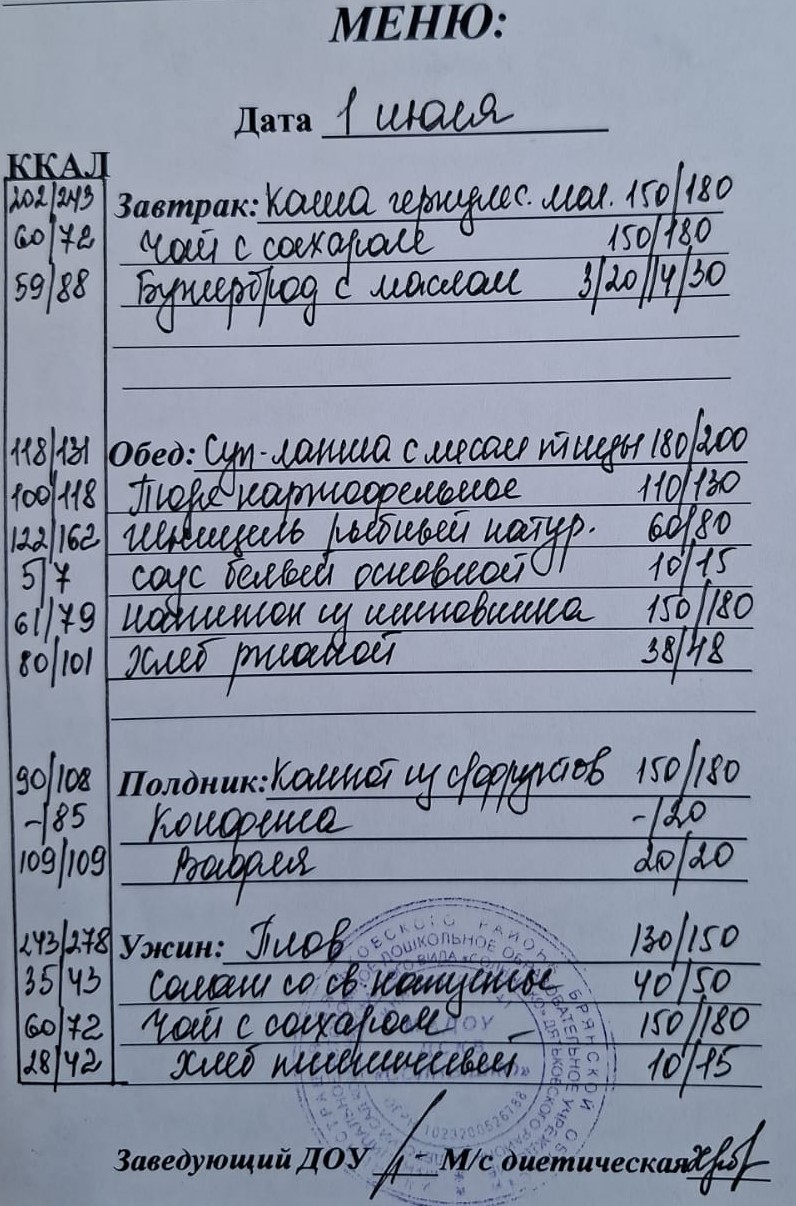 МЕНЮ:
Дата 1 июля
ККАЛ
202/243 Завтрак: Каша геркулес. мол. 150/180
60/72 Чай с сахаром 150/180
59/88 Бутерброд с маслом 3/20//4/30
118/131 Обед: Суп-лапша с мясом птицы 180/200
100/118 Пюре картофельное 110/130
122/162 Шницель рыбный натур. 60/80
5/7 соус белый основной 10/15
61/79 напиток из шиповника 150/180
80/101 Хлеб ржаной 38/48
90/108 Полдник: Компот из с/фруктов 150/180
-/85 Конфета -/20
109/109 Вафля 20/20
243/278 Ужин: Плов 130/150
35/43 салат со св капусты 40/50
60/72 Чай с сахаром 150/180
28/42 Хлеб пшеничный 10/15
Заведующий ДОУ М/с диетическая